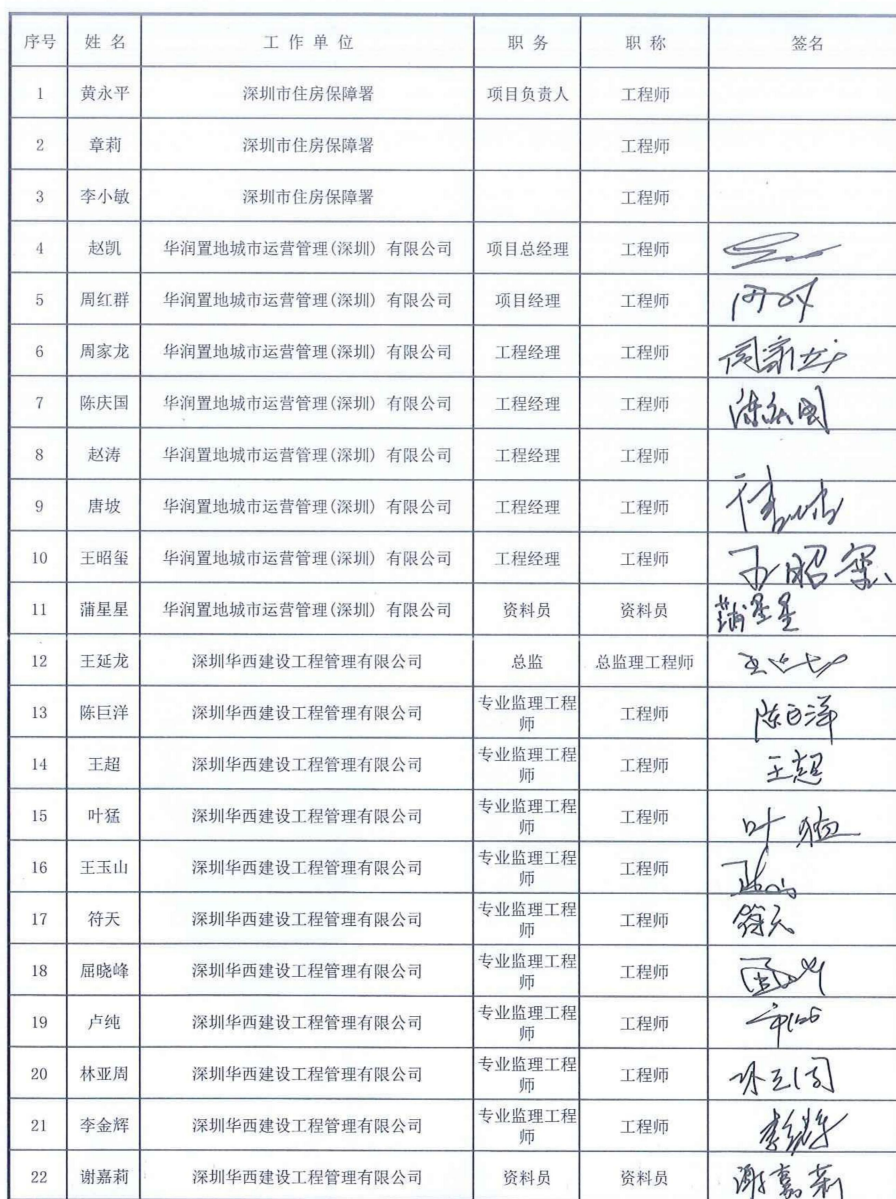 序号 姓 名 工 作 单 位 职 务 职 称 签名
1 黄永平 深圳市住房保障署 项目负责人 工程师
2 章莉 深圳市住房保障署 工程师
3 李小敏 深圳市住房保障署 工程师
4 赵凯 华润置地城市运营管理(深圳) 有限公司 项目总经理 工程师
5 周红群 华润置地城市运营管理(深圳) 有限公司 项目经理 工程师
6 周家龙 华润置地城市运营管理(深圳) 有限公司 工程经理 工程师 周家龙
7 陈庆国 华润置地城市运营管理(深圳) 有限公司 工程经理 工程师 陈庆国
8 赵涛 华润置地城市运营管理(深圳) 有限公司 工程经理 工程师
9 唐坡 华润置地城市运营管理(深圳) 有限公司 工程经理 工程师
10 王昭玺 华润置地城市运营管理(深圳) 有限公司 工程经理 工程师 王昭玺
11 蒲星星 华润置地城市运营管理(深圳) 有限公司 资料员 资料员 蒲星星
12 王延龙 深圳华西建设工程管理有限公司 总监 总监理工程师 王延龙
13 陈巨洋 深圳华西建设工程管理有限公司 专业监理工程师 工程师 陈巨洋
14 王超 深圳华西建设工程管理有限公司 专业监理工程师 工程师 王超
15 叶猛 深圳华西建设工程管理有限公司 专业监理工程师 工程师 叶猛
16 王玉山 深圳华西建设工程管理有限公司 专业监理工程师 工程师 王玉山
17 符天 深圳华西建设工程管理有限公司 专业监理工程师 工程师 符天
18 屈晓峰 深圳华西建设工程管理有限公司 专业监理工程师 工程师
19 卢纯 深圳华西建设工程管理有限公司 专业监理工程师 工程师
20 林亚周 深圳华西建设工程管理有限公司 专业监理工程师 工程师 林亚周
21 李金辉 深圳华西建设工程管理有限公司 专业监理工程师 工程师 李金辉
22 谢嘉莉 深圳华西建设工程管理有限公司 资料员 资料员 谢嘉莉